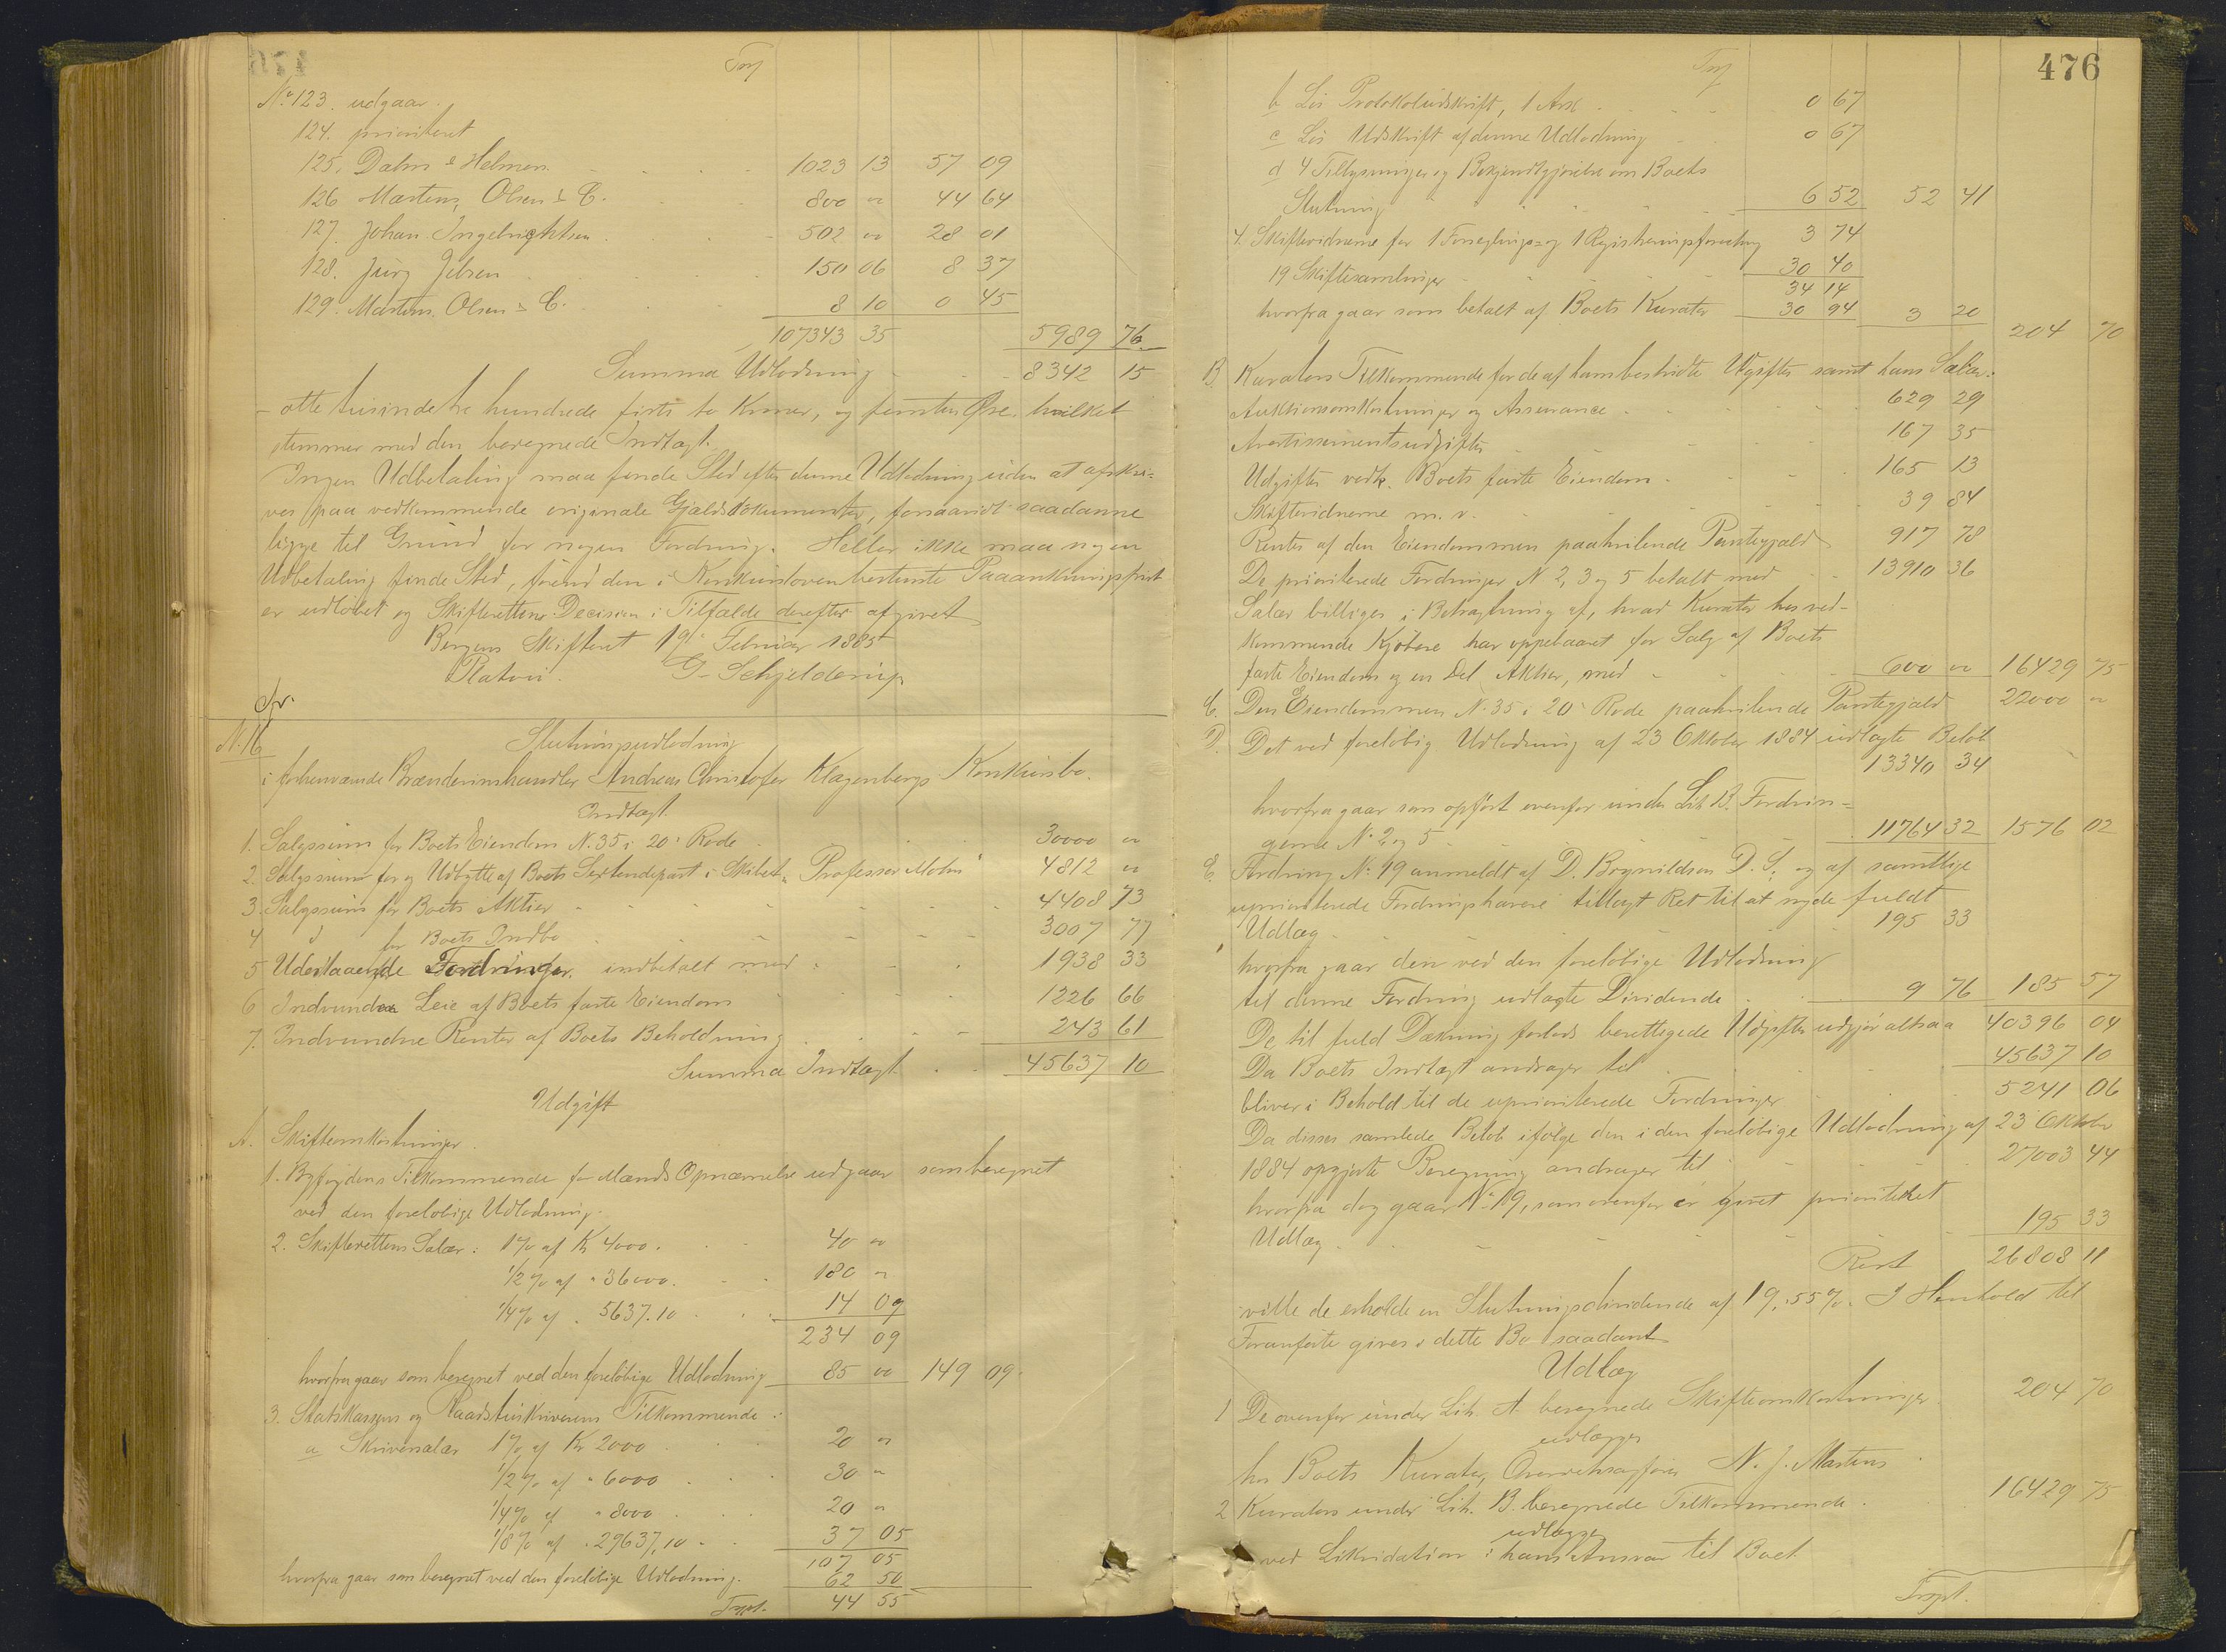 Tsp
No 123. udgaar.
124. prioriteret
125. Dahm & Helmen 1023 13 57 09
126 Martens, Olsen & C. 800 " 44 64
127. Johan Ingebrigtsen 502 " 28 01
128. Jürg Jebsen 150 06 8 37
129. Martens Olsen & C. 8 10 0 45
107343 35 5989 76
Summa Udlodning 8342 15
- otte tusinde tre hundrede firti to Kroner, og femten Øre, hvilket
stemmer med den beregnede Indtægt.
Ingen Udbetaling maa finde Sted efter denne Udlodning uden at afskri-
ves paa vedkommende originale Gjældsdokumenter, forsaavidt saadanne
ligge til Grund for nogen Fordring. Heller ikke maa nogen
Udbetaling finde Sted, førend den i Konkursloven bestemte Paaankningsfrist
er udløbet og Skifterettens Decision i Tilfælde derefter afgivet
Bergens Skifteret 19de Februar 1885
Platou. G. Schjelderup
No 16
Slutningsudlodning
i forhenværende Brændevinshandler Andreas Christofer Klagenbergs Konkursbo.
Indtægt.
1. Salgssum for Boets Eiendom N. 35 i 20de Rode 30000 "
2. Salgssum for og Udbytte af Boets Sextendepart i Skibet "Professor Mohn" 4812 "
3. Salgssum for Boets Aktier 4408 73
4 d for Boets Indbo 3007 77
5 Udestaaende Fordringer indbetalt med 1938 33
6 Indvunden Leie af Boets faste Eiendom 1226 66
7. Indvundne Renter af Boets Beholdning 243 61
Summa Indtægt 45637 10
Udgift
A. Skifteomkostninger.
1. Byfogdens Tilkommende for Mænds Opnævnelse udgaar som beregnet
ved den foreløbige Udlodning.
2. Skifterettens Salær: 1% af Kr 4000. 40 "
1/2% af " 36000. 180 "
1/4% af " 5637.10 14 09
234 09
hvorfra gaar som beregnet ved den foreløbige Udlodning 85 00 149 09
3. Statskassens og Raadstueskriverens Tilkommende:
a Skriversalær 1% af Kr 2000 20 "
1/2% af " 6000 30 "
1/4% af " 8000 20 "
1/8% af " 29637,10 37 05
107 05
hvorfra gaar som beregnet ved den foreløbige Udlodning. 62 50
Trspt. 44 55
476
Tsp
b Løs Protokoludskrift, 1 Ark 0 67
c Løs Udskrift af denne Udlodning 0 67
d 4 Tillysninger og Bekjendtgjørelse om Boets
Slutning 6 52 52 41
4. Skiftevidnerne for 1 Forseglings- og 1 Registreringsforretning 3 74
19 Skiftesamlinger 30 40
34 14
hvorfra gaar som betalt af Boets Kurator 30 94 3 20
204 70
B. Kurators Tilkommende for de af ham bestridte Udgifter samt hans Salær:
Auktionsomkostninger og Assurance 629 29
Avertissementsudgifter 167 35
Udgifter vedk. Boets faste Eiendom 165 13
Skiftevidnerne m. v. 39 84
Renter af den Eiendommen paahvilende Pantegjæld 917 78
De prioriterede Fordringer N 2, 3 og 5 betalt med 13910 36
Salær billiges i Betragtning af, hvad Kurator hos ved-
kommende Kjøbere har oppebaaret for Salg af Boets
faste Eiendom og en Del Aktier, med 600 00 16429 75
C. Den Eiendommen N. 35 i 20de Rode paahvilende Pantegjæld 22000 "
D. Det ved foreløbig Udlodning af 23 Oktober 1884 udlagte Beløb
13340 34
hvorfra gaar som opført ovenfor under Lit B. Fordrin-
gerne No 2 og 5 11764 32 1576 02
E. Fordring No 19 anmeldt af D. Brynildsen D. S. og af samtlige
uprioriterede Fordringshavere tillagt Ret til at nyde fuldt
Udlæg 195 33
hvorfra gaar den ved den foreløbige Udlodning
til denne Fordring udlagte Dividende 9 76 185 57
De til fuld Dækning forlods berettigede Udgifter udgjør altsaa 40396 04
Da Boets Indtægt andrager til 45637 10
bliver i Behold til de uprioriterede Fordringer 5241 06
Da disses samlede Beløb ifølge den i den foreløbige Udlodning af 23 Oktober
1884 opgjorte Beregning andrager til 27003 44
hvorfra dog gaar No 19, som ovenfor er givet prioriteret
Udlæg 195 33
Rest 26808 11
ville de erholde en Slutningsdividende af 19,55%. I Henhold til
Foranførte gives i dette Bo saadant
Udlæg
1 De ovenfor under Lit. A. beregnede Skifteomkostninger 204 70
udlægges
hos Boets Kurator, Overretssagfører N. J. Martens
2 Kurators under Lit. B. beregnede Tilkommende 16429 75
udlægges
ved Likvidation i hans Ansvar til Boet
Trspt.